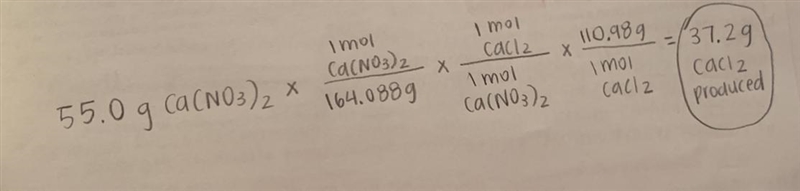 55.0 g Ca(NO3)2 × 1 mol Ca(NO3)2 / 164.088g × 1 mol CaCl2 / 1 mol Ca(NO3)2 × 110.98g / 1 mol CaCl2 = 37.2g CaCl2 produced